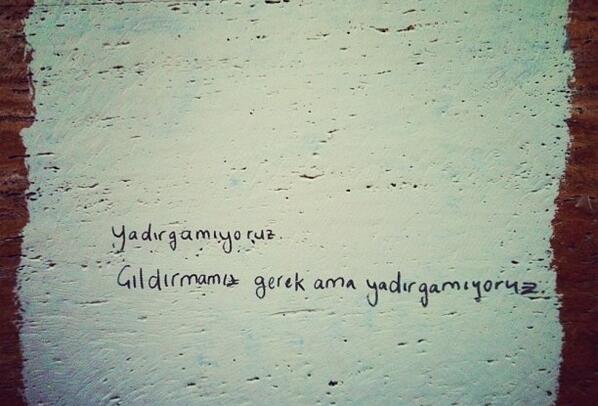 Yadırgamıyoruz.
Çıldırmamız gerek ama yadırgamıyoruz.